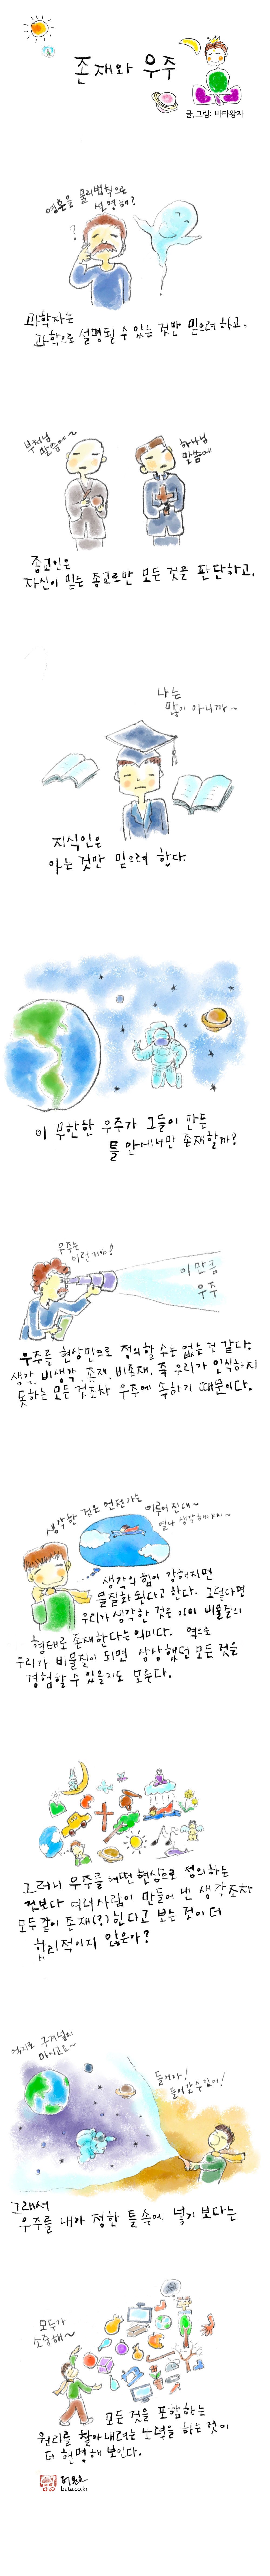 존재와 우주
글,그림: 바타왕자
영혼을 물리법칙으로
설명해?
?
과학자는
과학으로 설명될 수 있는 것만 믿으려 하고,
부처님
말씀에~
하나님
말씀에
종교인은
자신이 믿는 종교로만 모든 것을 판단하고,
나는
많이 아니까~
지식인은
아는 것만 믿으려 한다.
이 무한한 우주가 그들이 만든
틀 안에서만 존재할까?
우주는
이런거야!
이만큼
우주
우주를 현상만으로 정의할 수는 없는 것 같다.
생각, 비생각, 존재, 비존재, 즉 우리가 인식하지
못하는 모든 것조차 우주에 속하기 때문이다.
생각한 것은 언젠가는
이루어진대~
열심히 생각해야지~
생각의 힘이 강해지면
물질화 된다고 한다. 그렇다면
우리가 생각한 것은 이미 비물질의
형태로 존재한다는 의미다. 역으로
우리가 비물질이 되면 상상했던 모든 것을
경험할 수 있을지도 모른다.
그러니 우주를 어떤 현상으로 정의하는
것보다 여러사람이 만들어 낸 생각조차
모두 같이 존재(?)한다고 보는 것이 더
합리적이지 않은가?
억지로 구겨넣지
마시고요~
들어가!
들어갈 수 있어!
그래서
우주를 내가 정한 틀 속에 넣기 보다는
모두가
소중해~
모든 것을 포함하는
원리를 찾아내려는 노력을 하는 것이
더 현명해 보인다.
bata.co.kr